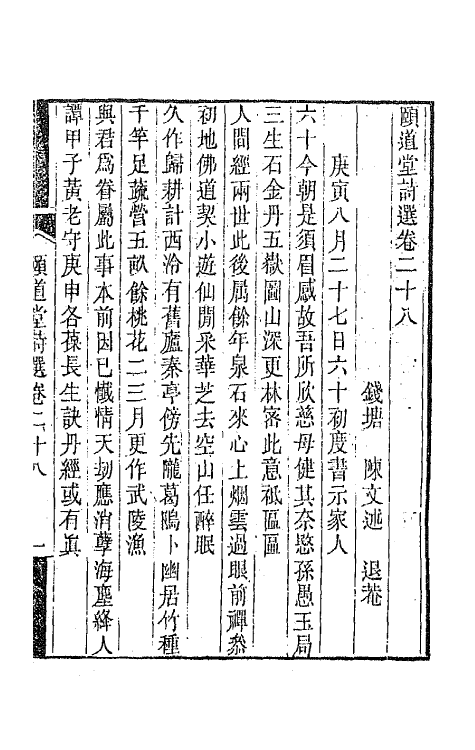 頤道堂詩選卷二十八
錢塘　陳文述　退菴
庚寅八月二十七日六十初度書示家人
六十今朝是須眉感故吾所欣慈母健其奈愍孫愚玉局
三生石金丹五嶽圖山深更林密此意祗區區
人間經兩世此後屬餘年泉石來心上烟雲過眼前禪叅
初地佛道契小遊仙閒采華芝去空山任醉眠
久作歸耕計西泠有舊廬秦亭傍先隴葛隝卜幽居竹種
千竿足蔬營五畝餘桃花二三月更作武陵漁
與君爲眷屬此事本前因已懺情天劫應消孽海塵絳人
譚甲子黃老守庚申各葆長生訣丹經或有眞
頤道堂詩選卷二十八
一